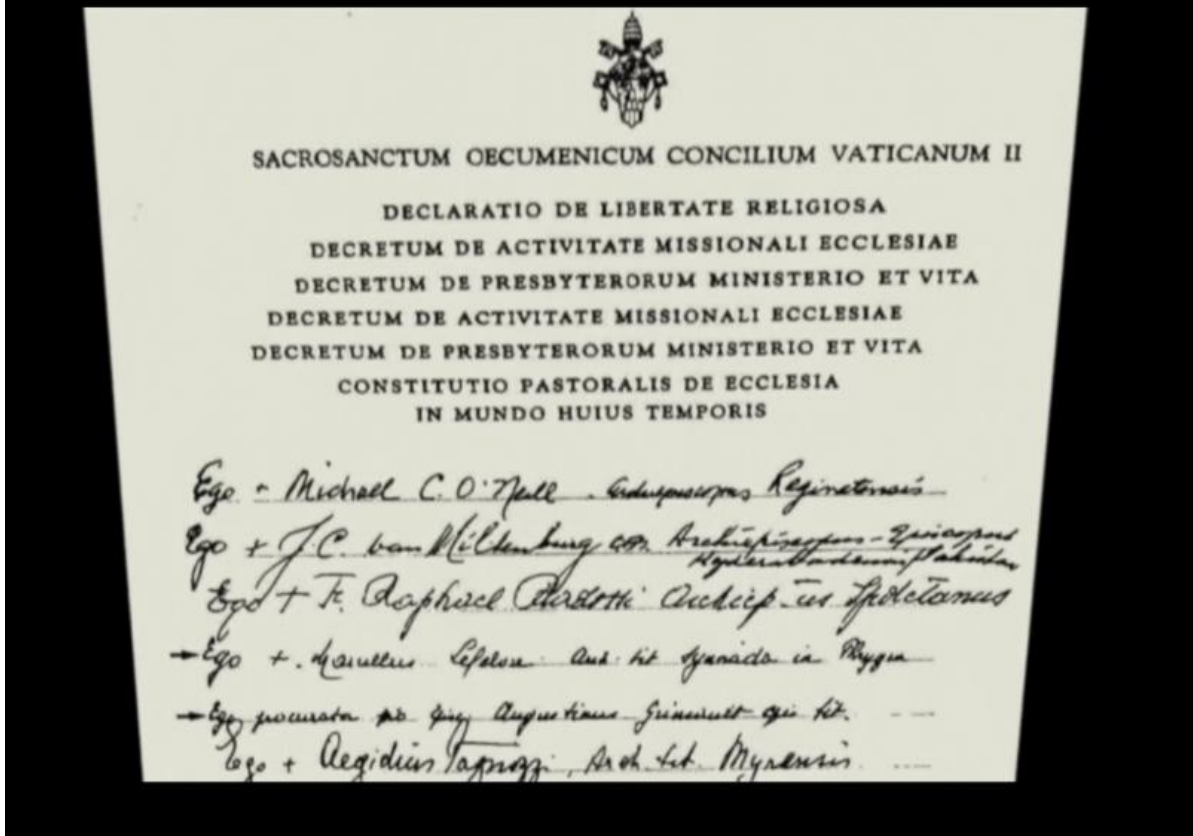 SACROSANCTUM OECUMENICUM CONCILIUM VATICANUM II
DECLARATIO DE LIBERTATE RELIGIOSA
DECRETUM DE ACTIVITATE MISSIONALI ECCLESIAE
DECRETUM DE PRESBYTERORUM MINISTERIO ET VITA
DECRETUM DE ACTIVITATE MISSIONALI ECCLESIAE
DECRETUM DE PRESBYTERORUM MINISTERIO ET VITA
CONSTITUTIO PASTORALIS DE ECCLESIA
IN MUNDO HUIUS TEMPORIS
Ego + Michael C. O'Neill Archiepiscopus Reginatensis
Ego + J.C. van Miltenburg ofm. Archiepiscopus - Episcopus
Ego + Fr. Raphael Radossi Archiep-us Spoletanus
Ego + Marcellus Lefebvre tit Synnada in Phrygia
Ego procurator Augustinus Grimault tit.
Ego + Aegidius Arch. tit. Myrensis